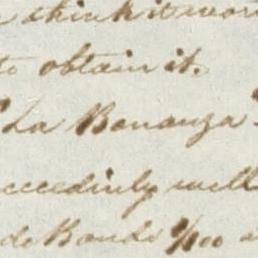 think it wor
to obtain it.
"La Bonanza"
ceedinly well
de Bonds